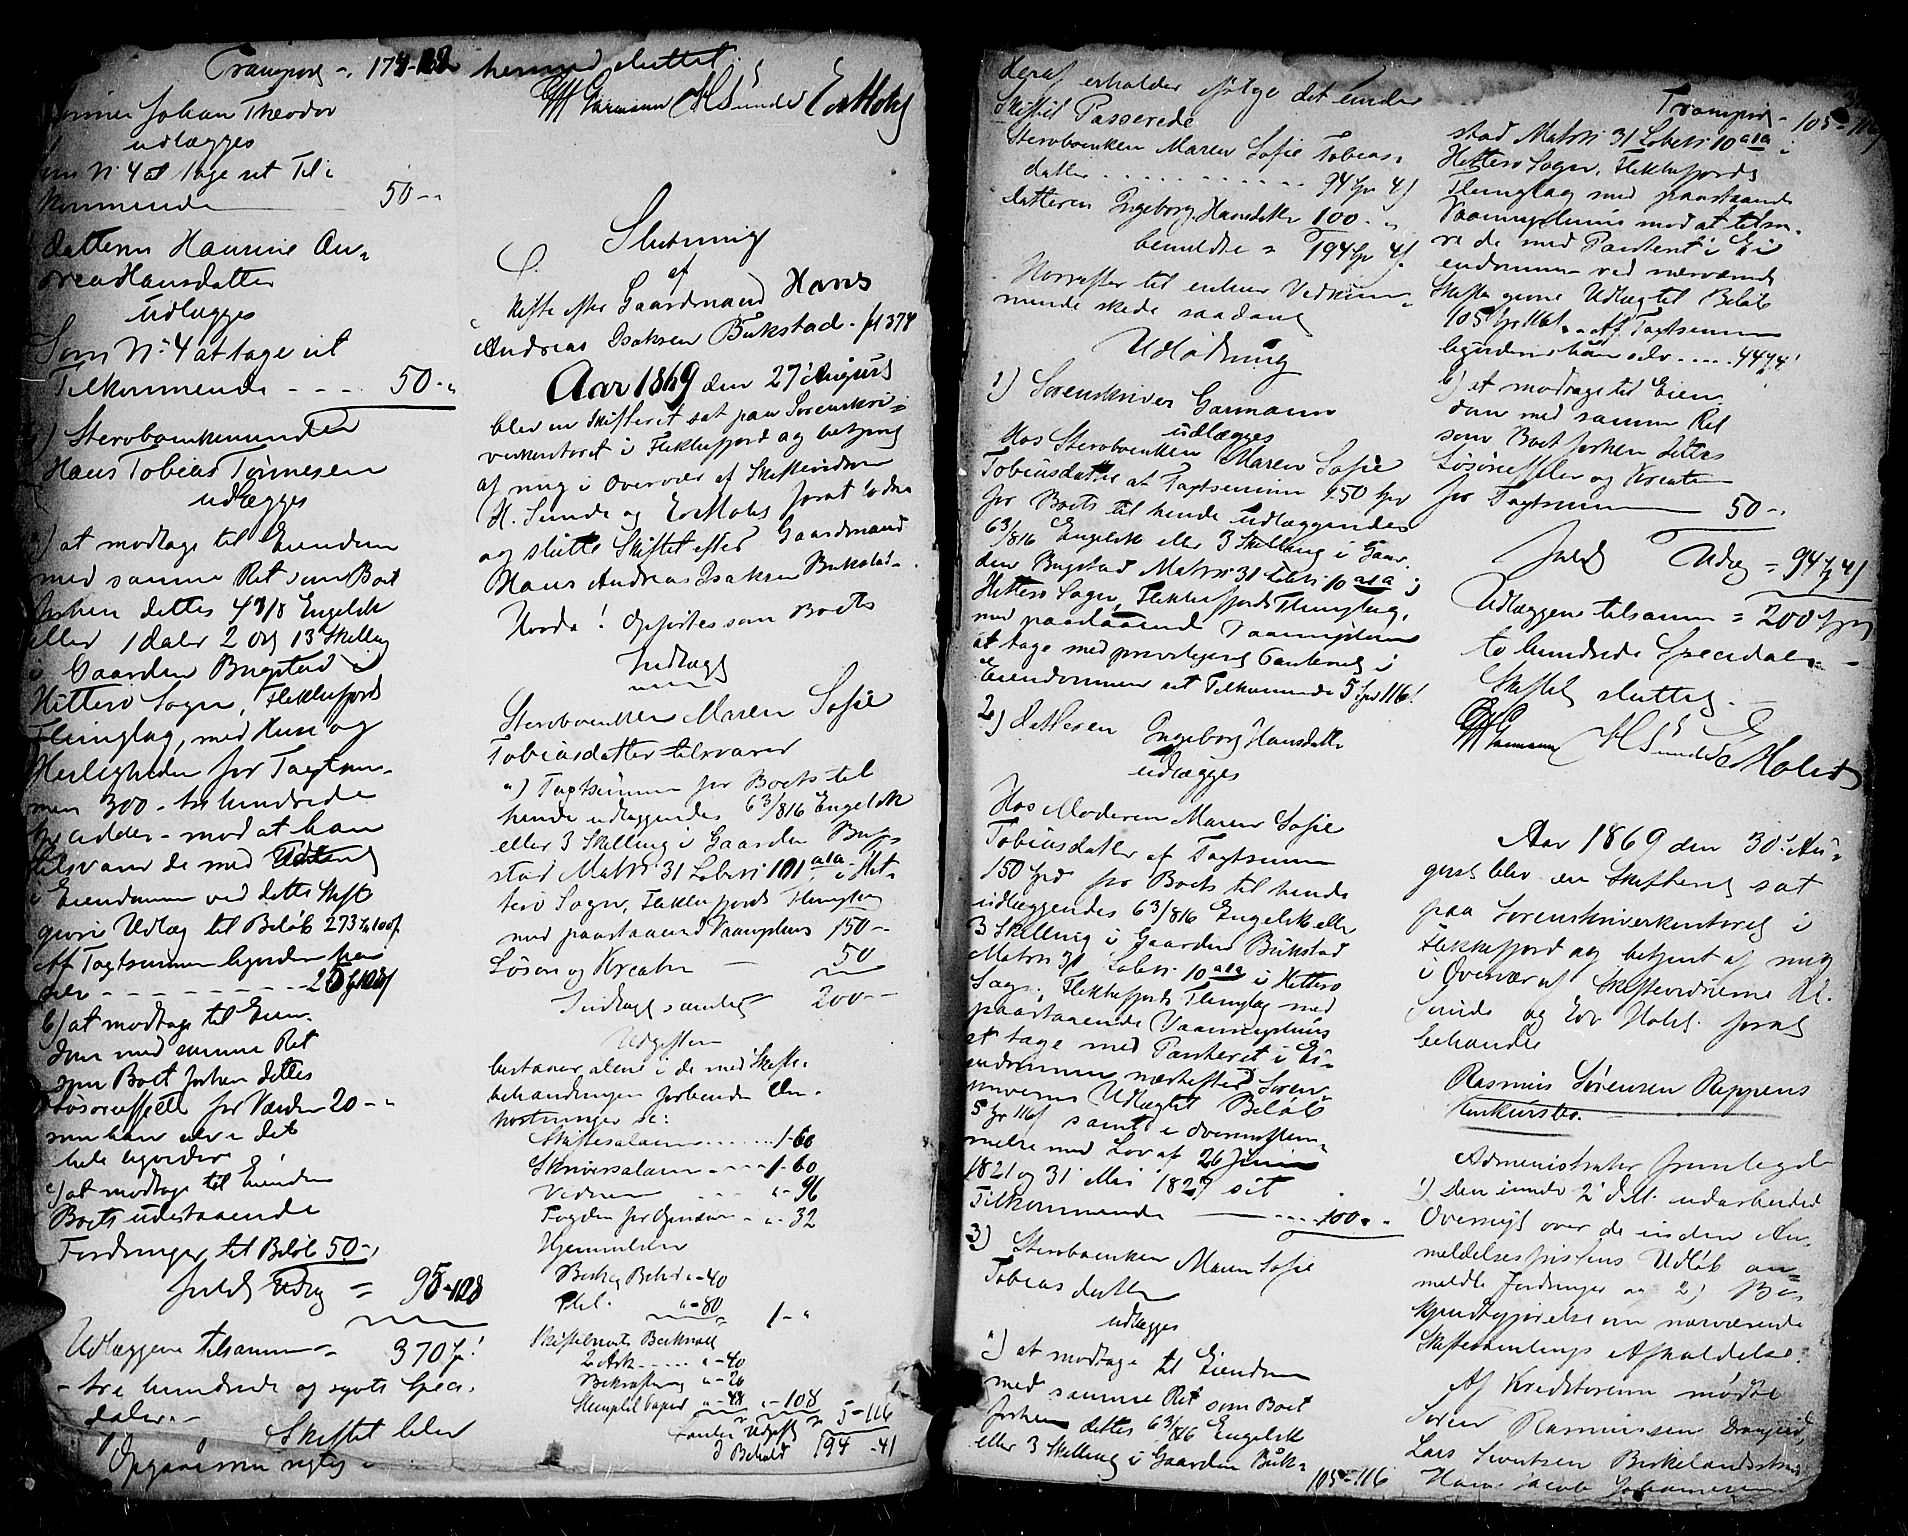 Transport - 174-122
Sønnen Johan Theodor
udlægges
som N: 4 at tage ut Til i
kommende 50 - "
datteren Hanrine An-
dreaHansdatter
udlægges
Som N: 4 at tage ut
Tilkommende - - - 50 - "
Sterbboenkemanden
Hans Tobias Tønnesen
udlægges
a) at modtage til Eiendom
med samme Ret som Boet
forhen dettes 4 7/8 Engelsk
eller 1 daler 2 ort 13 Skilling
i Gaarden Bugstad i
Hitterø Sogn, Flekkefjords
Thinglag, med Huse og
Herligheder for Taxtsum-
men 300 - tre hundrede
Spedaler - mod at han
tilsvarer de med
i Eiendommen ved dette Skifte
givne Udlæg til Beløb 273 Sp 100 f
Af Taxtsummen ligeden han
selv - - - - - - - 25
b) at modtage til Eien-
dom med samme Ret
som Boet forhen dettes
Løsøreeffekter for Værdien 20 - "
som han selv i det
hele ligeder
c) at modtage til Eiendom
Boets udestaaende
Fordringer til Beløb 50 - "
fuldt Udlæg = 95 - 122
Udlæggene tilsammen = 370 Sp!
- tre hundrede og sytti Speci-
daler. -
Skiftet blev
Opgjørt som rigtig
hermed sluttet.
Garmann HSunde EdvHolst
Slutning
af
Skifte efter Gaardmand Hans
Andreas Isaksen Bukstad. - fol 378
Aar 1869 den 27' August
blev en Skifteret sat paa Sorenskri-
verkontoret i Flekkefjord og betjent
af mig i Overvær af Skiftevidnerne
H. Sunde og EdvHolst forat lodne
og slutte Skiftet efter Gaardmand
Hans Andreas Isaksen Bukstad. -
Hvorda! Opførtes som Boets
Indtægt
Sterboenken Maren Sofie
Tobiasdatter tilsvarer
a) Taxtsummen for Boets til
hende udlæggendes 63/816 Engelsk
eller 3 Skilling i Gaarden Bug-
stad Matr: 31 Løbe: 101 a1a i Hit-
terø Sogn, Flekkefjords Thinglag
med paastaaende Vaaningshus 150 -
Løsøre og Kreatur - 50
Indtægt samlet 200 - -
Udgiften
bestaaer alene i de med Skifte-
behandlingen forbundne Om-
kostninger se:
Skiftesalaren . . . . . . 1 - 60
Skriversalaren - - - - 1 - 60
Vidnerne - - - " - 96
Fogden for - " - 32
Hjemmelsen
Besk. Behd " - 40
Thl. " - 80
1 - "
Skifterets Beskrivelse
2 Ark . . . . . " - 40
Bekræftning " - 20
Stemplet Papir " - 48 " - 108
Samlet Udgift 5 - 116
I Behold 194 - 4 f
deraf erholder ifølge det under
Skiftet Passerede
Sterboenken Maren Sofie Tobias-
datter . . . . . . . . . . . 94 Sp 4 f
datteren Ingeborg Hansdatter 100 - "
bemeldte = 194 Sp 4 f
Hvorefter til enhver Vedkom-
mende skede saadant
Udlodning
1) Sorenskriver Garmann
udlægges
Hos Sterboenken Maren Sofie
Tobiasdatter at Taxtsummen 150 Spd
for Boets til hende udlæggendes
63/816 Engelsk eller 3 Skilling i Gaar-
den Bugstad Matr: 31 Løbe: 10 a1a i
Hitterø Sogn, Flekkefjords Thinglag,
med paastaaende Vaaningshus
at tage med privilegeret Panteret i
Eiendommen sit Tilkommende 5 Spd 116!
2) datteren Ingeborg Hansdatter
udlægges
Hos Moderen Maren Sofie
Tobiasdatter af Taxtsummen
150 Spd for Boets til hende
udlæggendes 63/816 Engelsk eller
3 Skilling i Gaarden Bukstad
Matr: 31 Løbe: 10 a1a i Hitterø
Sogn, Flekkefjords Thinglag med
paastaaende Vaaningshus
at tage med Panteret i Ei-
endommen næstefter Soren-
skriverens Udlægtil Beløb
5 Sp 116 f samt i Overensstem-
melse med Lov af 26 Juni
1821 og 31 Mai 1827 sit
Tilkommende - - - - 100 - "
3) Sterboenken Maren Sofie
Tobiasdatter
udlægges
a) at modtage til Eiendom
med samme Ret som Boet
forhen dettes 63/816 Engelsk
eller 3 Skilling i Gaarden Buk-
105 - 116
Transport - 105 - 116
stad Matr: 31 Løbe: 10 a1a i
Hitterø Sogn, Flekkefjords
Thinglag med paastaaende
Vaaningshuse mod at tilsva-
re de med Panteret i Ei-
endommen ved nærværende
Skifte givne Udlæg til Beløb
105 Sp 116 f. - Af Taxtsummen
ligeden han selv . . . . . 44 Sp 4!
b) at modtage til Eien-
dom med samme Ret
som Boet forhen dettes
Løsøreeffekter og Kreatur
for Taxtsummen 50 - "
fuldt Udlæg = 94 Sp 4 f
Udlæggene tilsammen = 200 Spd
to hundrede Specidaler. -
Skiftet sluttet. -
Garmann HSunde EHolst
Aar 1869 den 30' Au-
gust blev en Skifteret sat
paa Sorenskriverkontoret i
Flekkefjord og betjent af mig
i Overvær af Skiftevidnerne H.
Sunde og Edv Holst forat
behandle
Rasmus Sørensen Reppens
Konkursbo.
Administrator fremlagde
1) Den under 2' d.M. udarbeided
Oversigt over de inden An-
meldelsesfristens Udløb an-
meldte Fordringer og 2) Be-
kjendtgjørelse om nærværende
Skiftesamlings Afholdelse.
Af Kreditorerne mødte
Søren Rasmussen Drangeid,
Lars Sivertsen Birkelandsstrand
Hans Jacob Johannesen